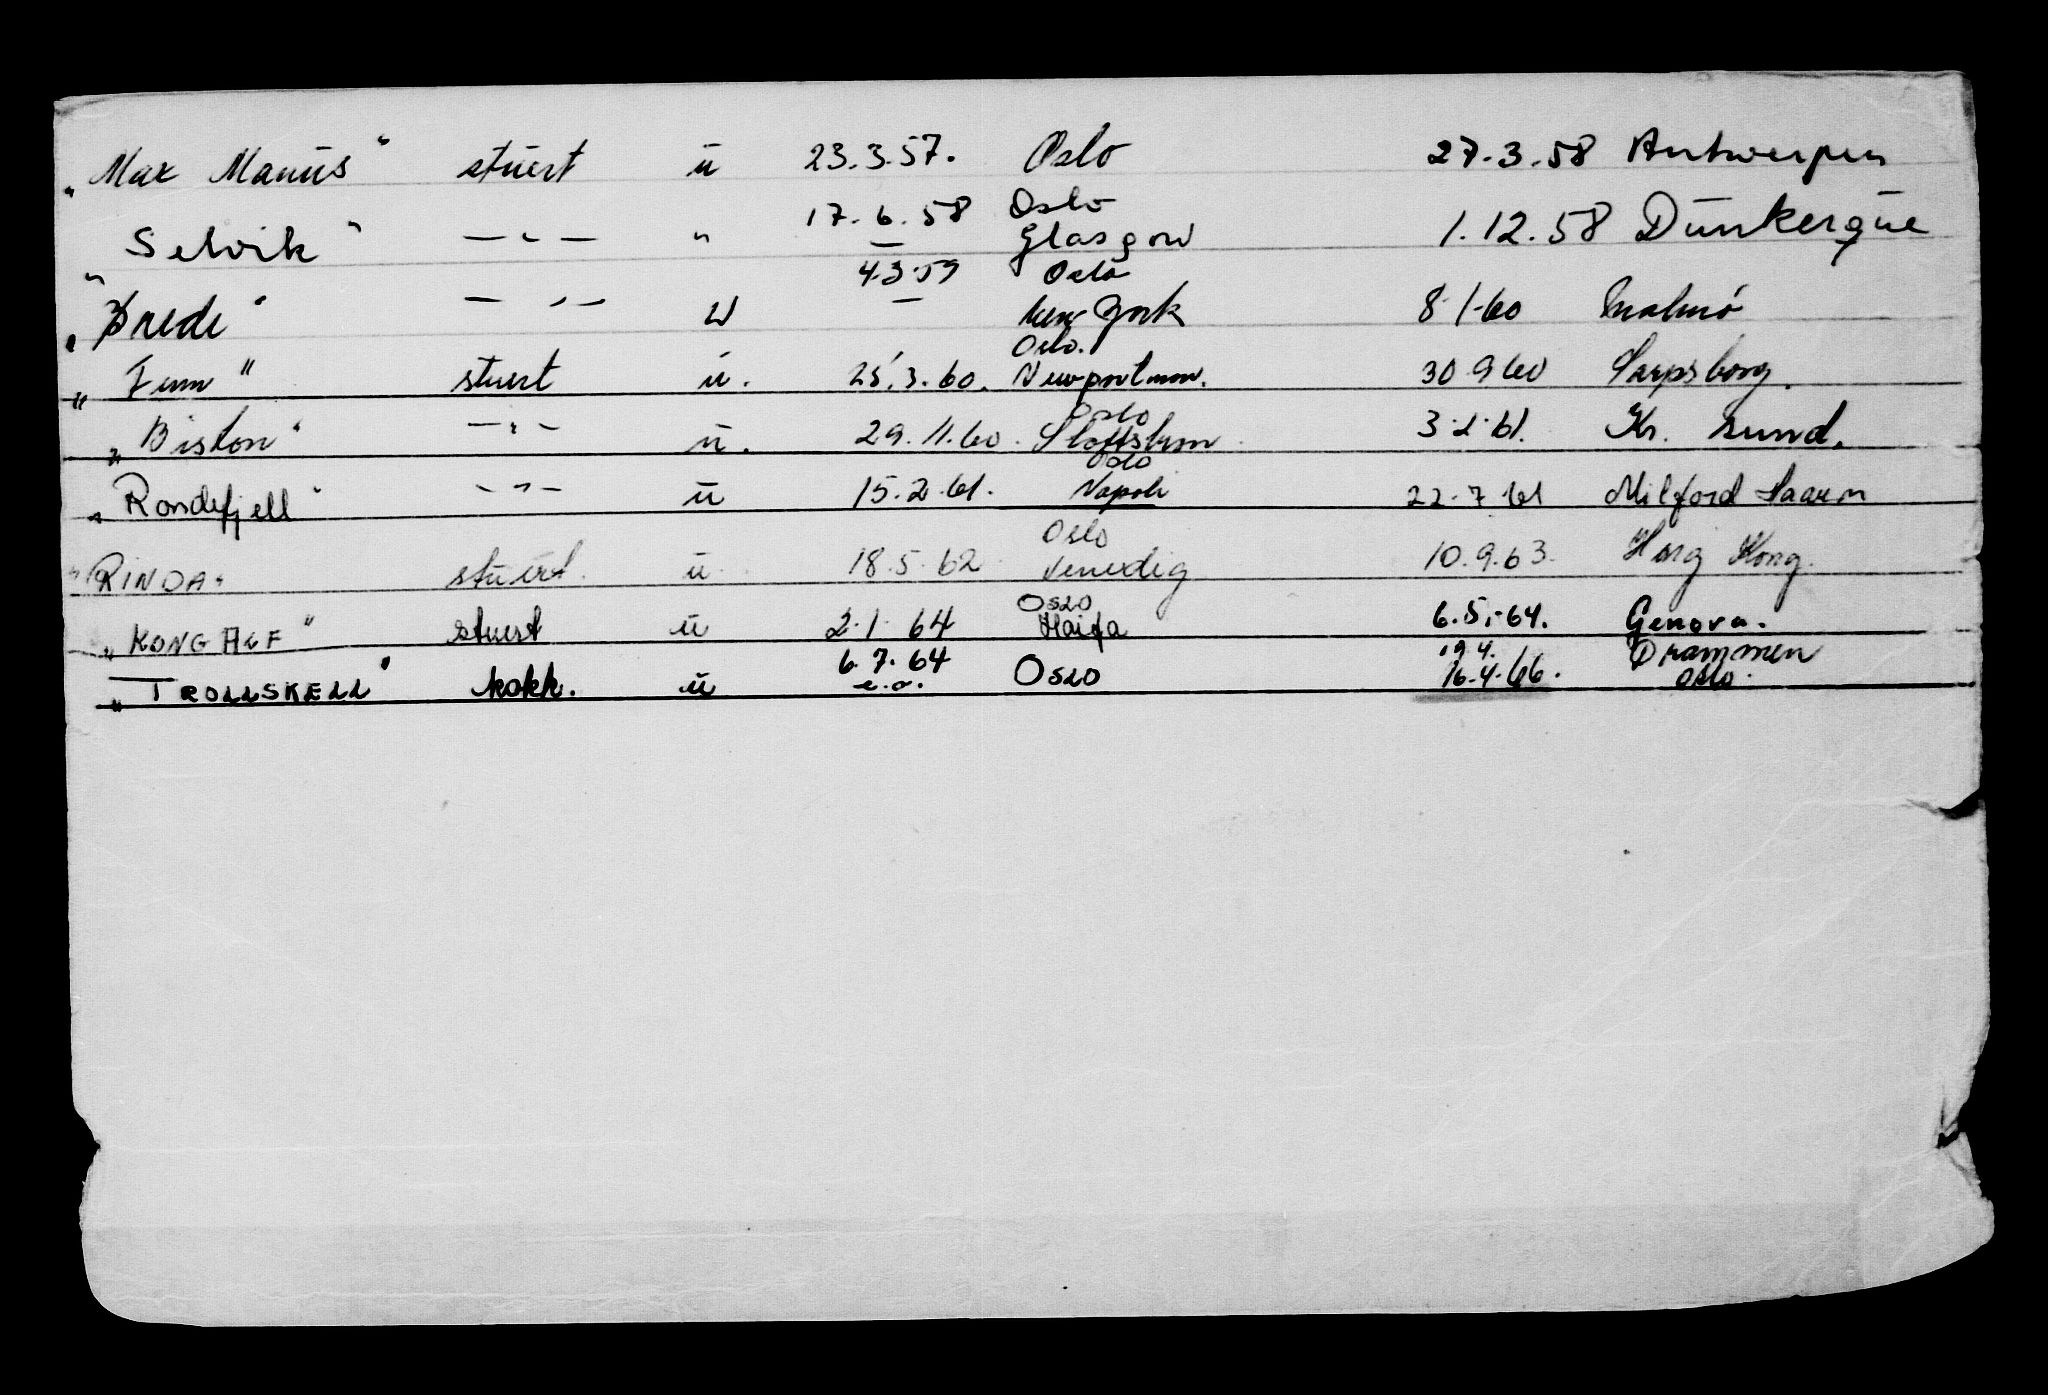 „Max Manus" stuert u 23.3.57. Oslo 27.3.58 Antwerpen
17.6.58 Oslo
„Selvik" — " — " — Glasgow 1.12.58 Dunkerque
4.3.59 Oslo
— " — u — New York 8.1.60 Malmö
Oslo.
„Finn" stuert u. 25.3.60. Newport mon. 30.9.60 Sarpsborg.
Oslo
„Biston" — " — u. 29.11.60. 3.2.61. Kr. sund.
Oslo
„Rondefjell" — " — u 15.2.61. Napoli 22.7.61 Milford Haven
Oslo
„RINDA" stuert. u 18.5.62 Venedig 10.9.63. Hong Kong.
Oslo
„KONG ALF" stuert u 2.1.64 Haifa 6.5.64. Genova.
6.7.64 19.4. Drammen
„TROLLSKELL" kokk. u e.o. Oslo 16.4.66. Oslo.